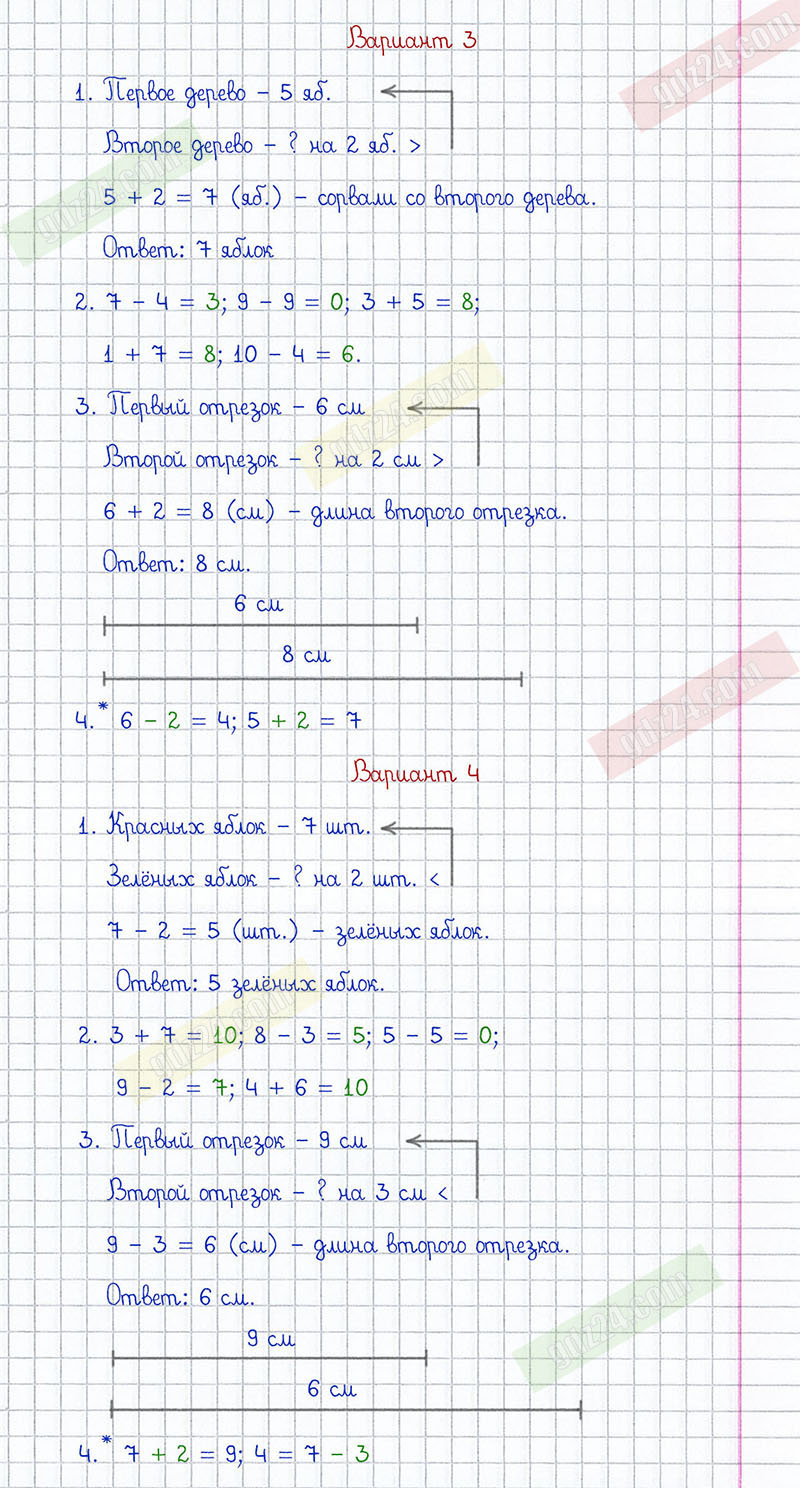 Вариант 3
1. Первое дерево – 5 яб.
Второе дерево – ? на 2 яб. >
5 + 2 = 7 (яб.) – сорвали со второго дерева.
Ответ: 7 яблок
2. 7 – 4 = 3; 9 – 9 = 0; 3 + 5 = 8;
1 + 7 = 8; 10 – 4 = 6.
3. Первый отрезок – 6 см
Второй отрезок – ? на 2 см >
6 + 2 = 8 (см) – длина второго отрезка.
Ответ: 8 см.
6 см
8 см
4.* 6 – 2 = 4; 5 + 2 = 7
Вариант 4
1. Красных яблок – 7 шт.
Зелёных яблок – ? на 2 шт. <
7 – 2 = 5 (шт.) – зелёных яблок.
Ответ: 5 зелёных яблок.
2. 3 + 7 = 10; 8 – 3 = 5; 5 – 5 = 0;
9 – 2 = 7; 4 + 6 = 10
3. Первый отрезок – 9 см
Второй отрезок – ? на 3 см <
9 – 3 = 6 (см) – длина второго отрезка.
Ответ: 6 см.
9 см
6 см
4.* 7 + 2 = 9; 4 = 7 – 3
gdz24.com
gdz24.com
gdz24.com
gdz24.com
gdz24.com
gdz24.com